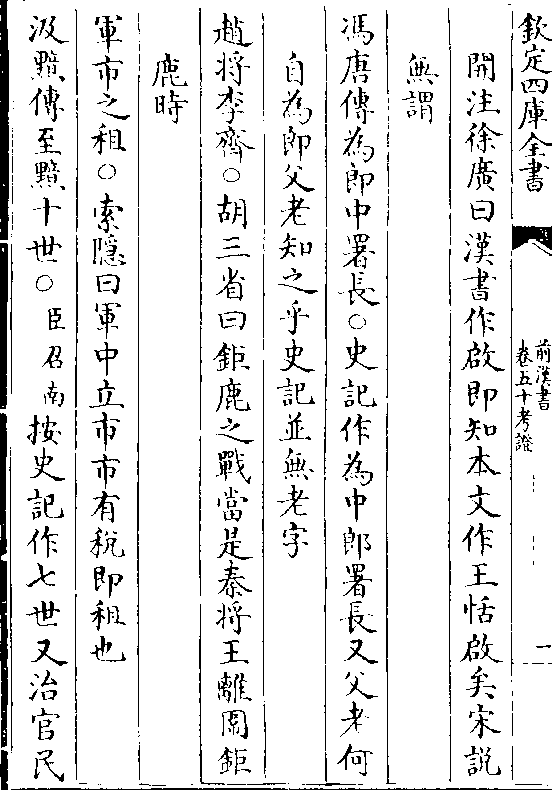 欽定四庫全書
前漢書
卷五十考證
一
開注徐廣曰漢書作啟即知本文作王恬啟矣宋説
無謂
馮唐傳為郎中署長○史記作為中郎署長又父老何
自為郎父老知之乎史記並無老字
趙將李齊○胡三省曰鉅鹿之戰當是秦將王離圍鉅
鹿時
軍市之租○索隱曰軍中立市市有稅即租也
汲黯傳至黯十世○臣召南按史記作七世又治官民